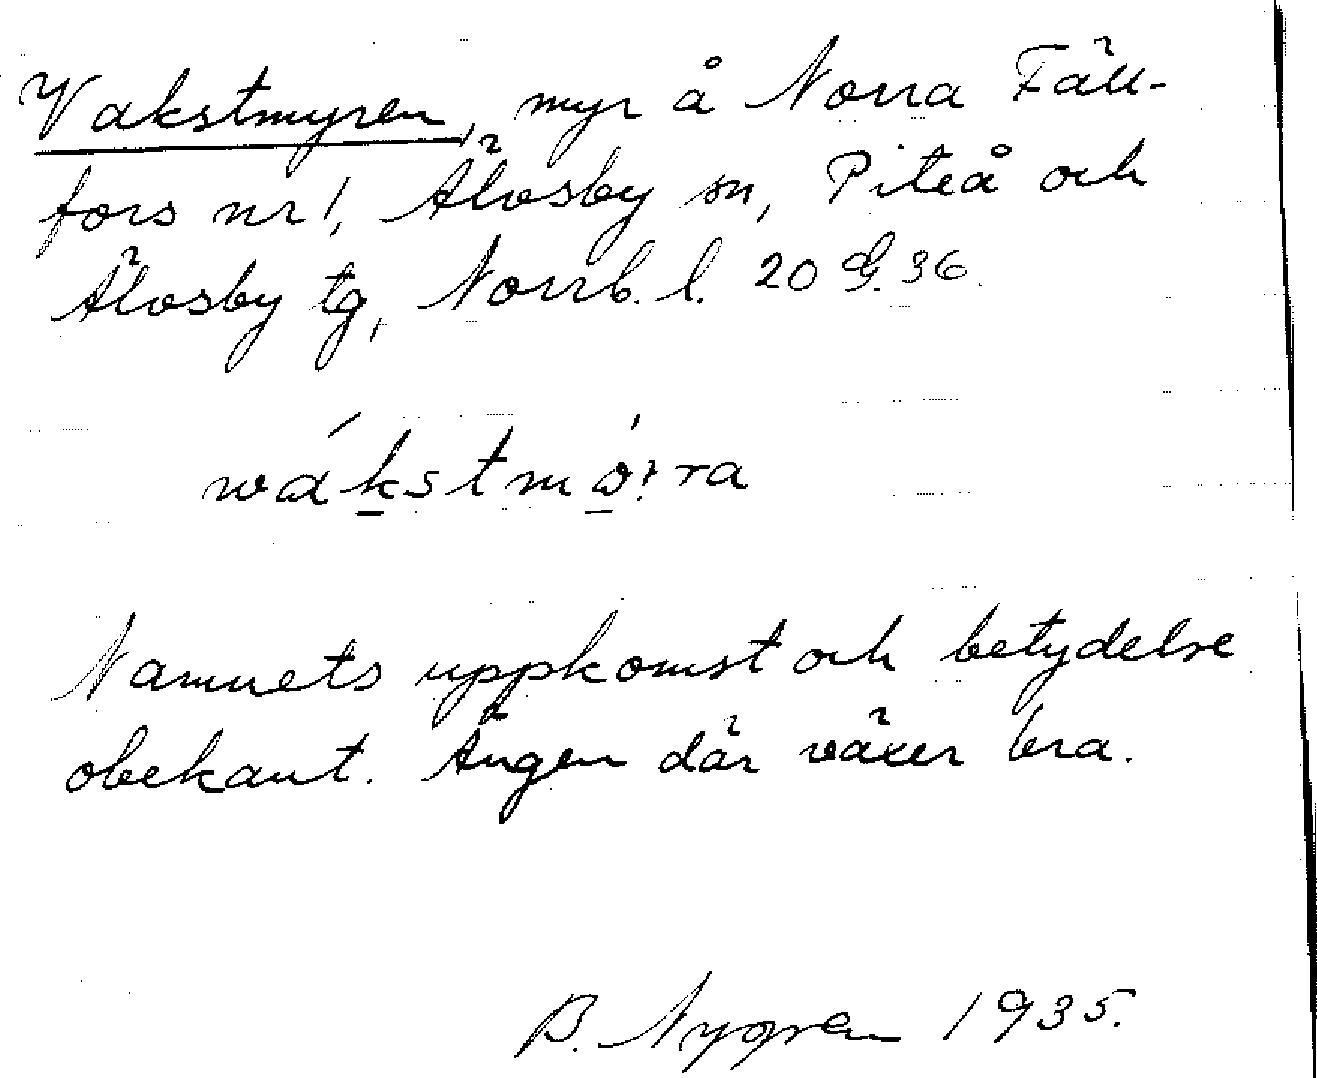 Vakstmyren, myr å Norra Fäll-
fors nr 1, Älvsby sn, Piteå och
Älvsby tg, Norrb. l. 20 G. 36
wákstmó:ra
Namnets uppkomst och betydelse
obekant. Ängen där växer bra.
B. Nygren 1935.